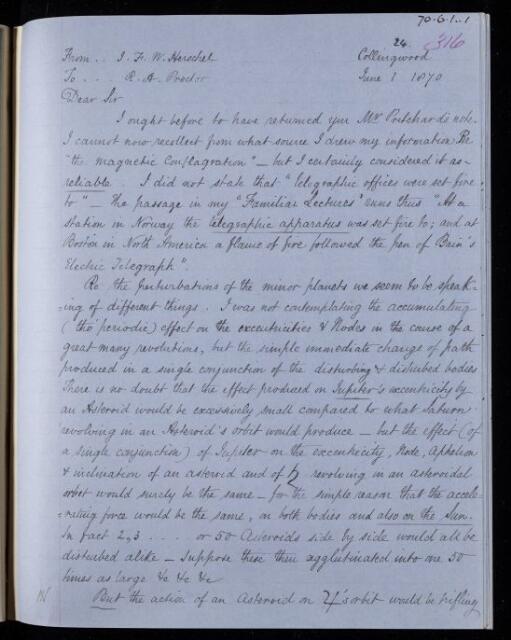 70-6-1..1
24 316
From .. J. F. W. Herschel Collingwood
To .... R. A. Proctor June 1 1870
Dear Sir
I ought before to have returned your Mr Pritchard's note.
I cannot now recollect from what source I drew my information Re
"the magnetic conflagration" – but I certainly considered it as
reliable. I did not state that "telegraphic offices were set fire
to" – The passage in my "Familiar Lectures" runs thus "At a
station in Norway the telegraphic apparatus was set fire to; and at
Boston in North America a flame of fire followed the pen of Bain's
Electric Telegraph".
Re the perturbations of the minor planets we seem to be speak-
-ing of different things. I was not contemplating the accumulating
(tho' periodic) effect on the excentricities & Nodes in the course of a
great many revolutions, but the simple immediate change of path
produced in a single conjunction of the disturbing & disturbed bodies
There is no doubt that the effect produced on Jupiter's excentricity by
an Asteroid would be excessively small compared to what Saturn
revolving in an Asteroid's orbit would produce – but the effect (of
a single conjunction) of Jupiter on the excentricity, Node, Aphelion
& inclination of an asteroid and of ♄ revolving in an asteroidal
orbit would surely be the same – for the simple reason that the accele-
-rating force would be the same, on both bodies and also on the Sun.
In fact 2, 3 .... or 50 Asteroids side by side would all be
disturbed alike – Suppose these then agglutinated into one 50
times as large &c &c &c
But the action of an Asteroid on ♃'s orbit would be trifling